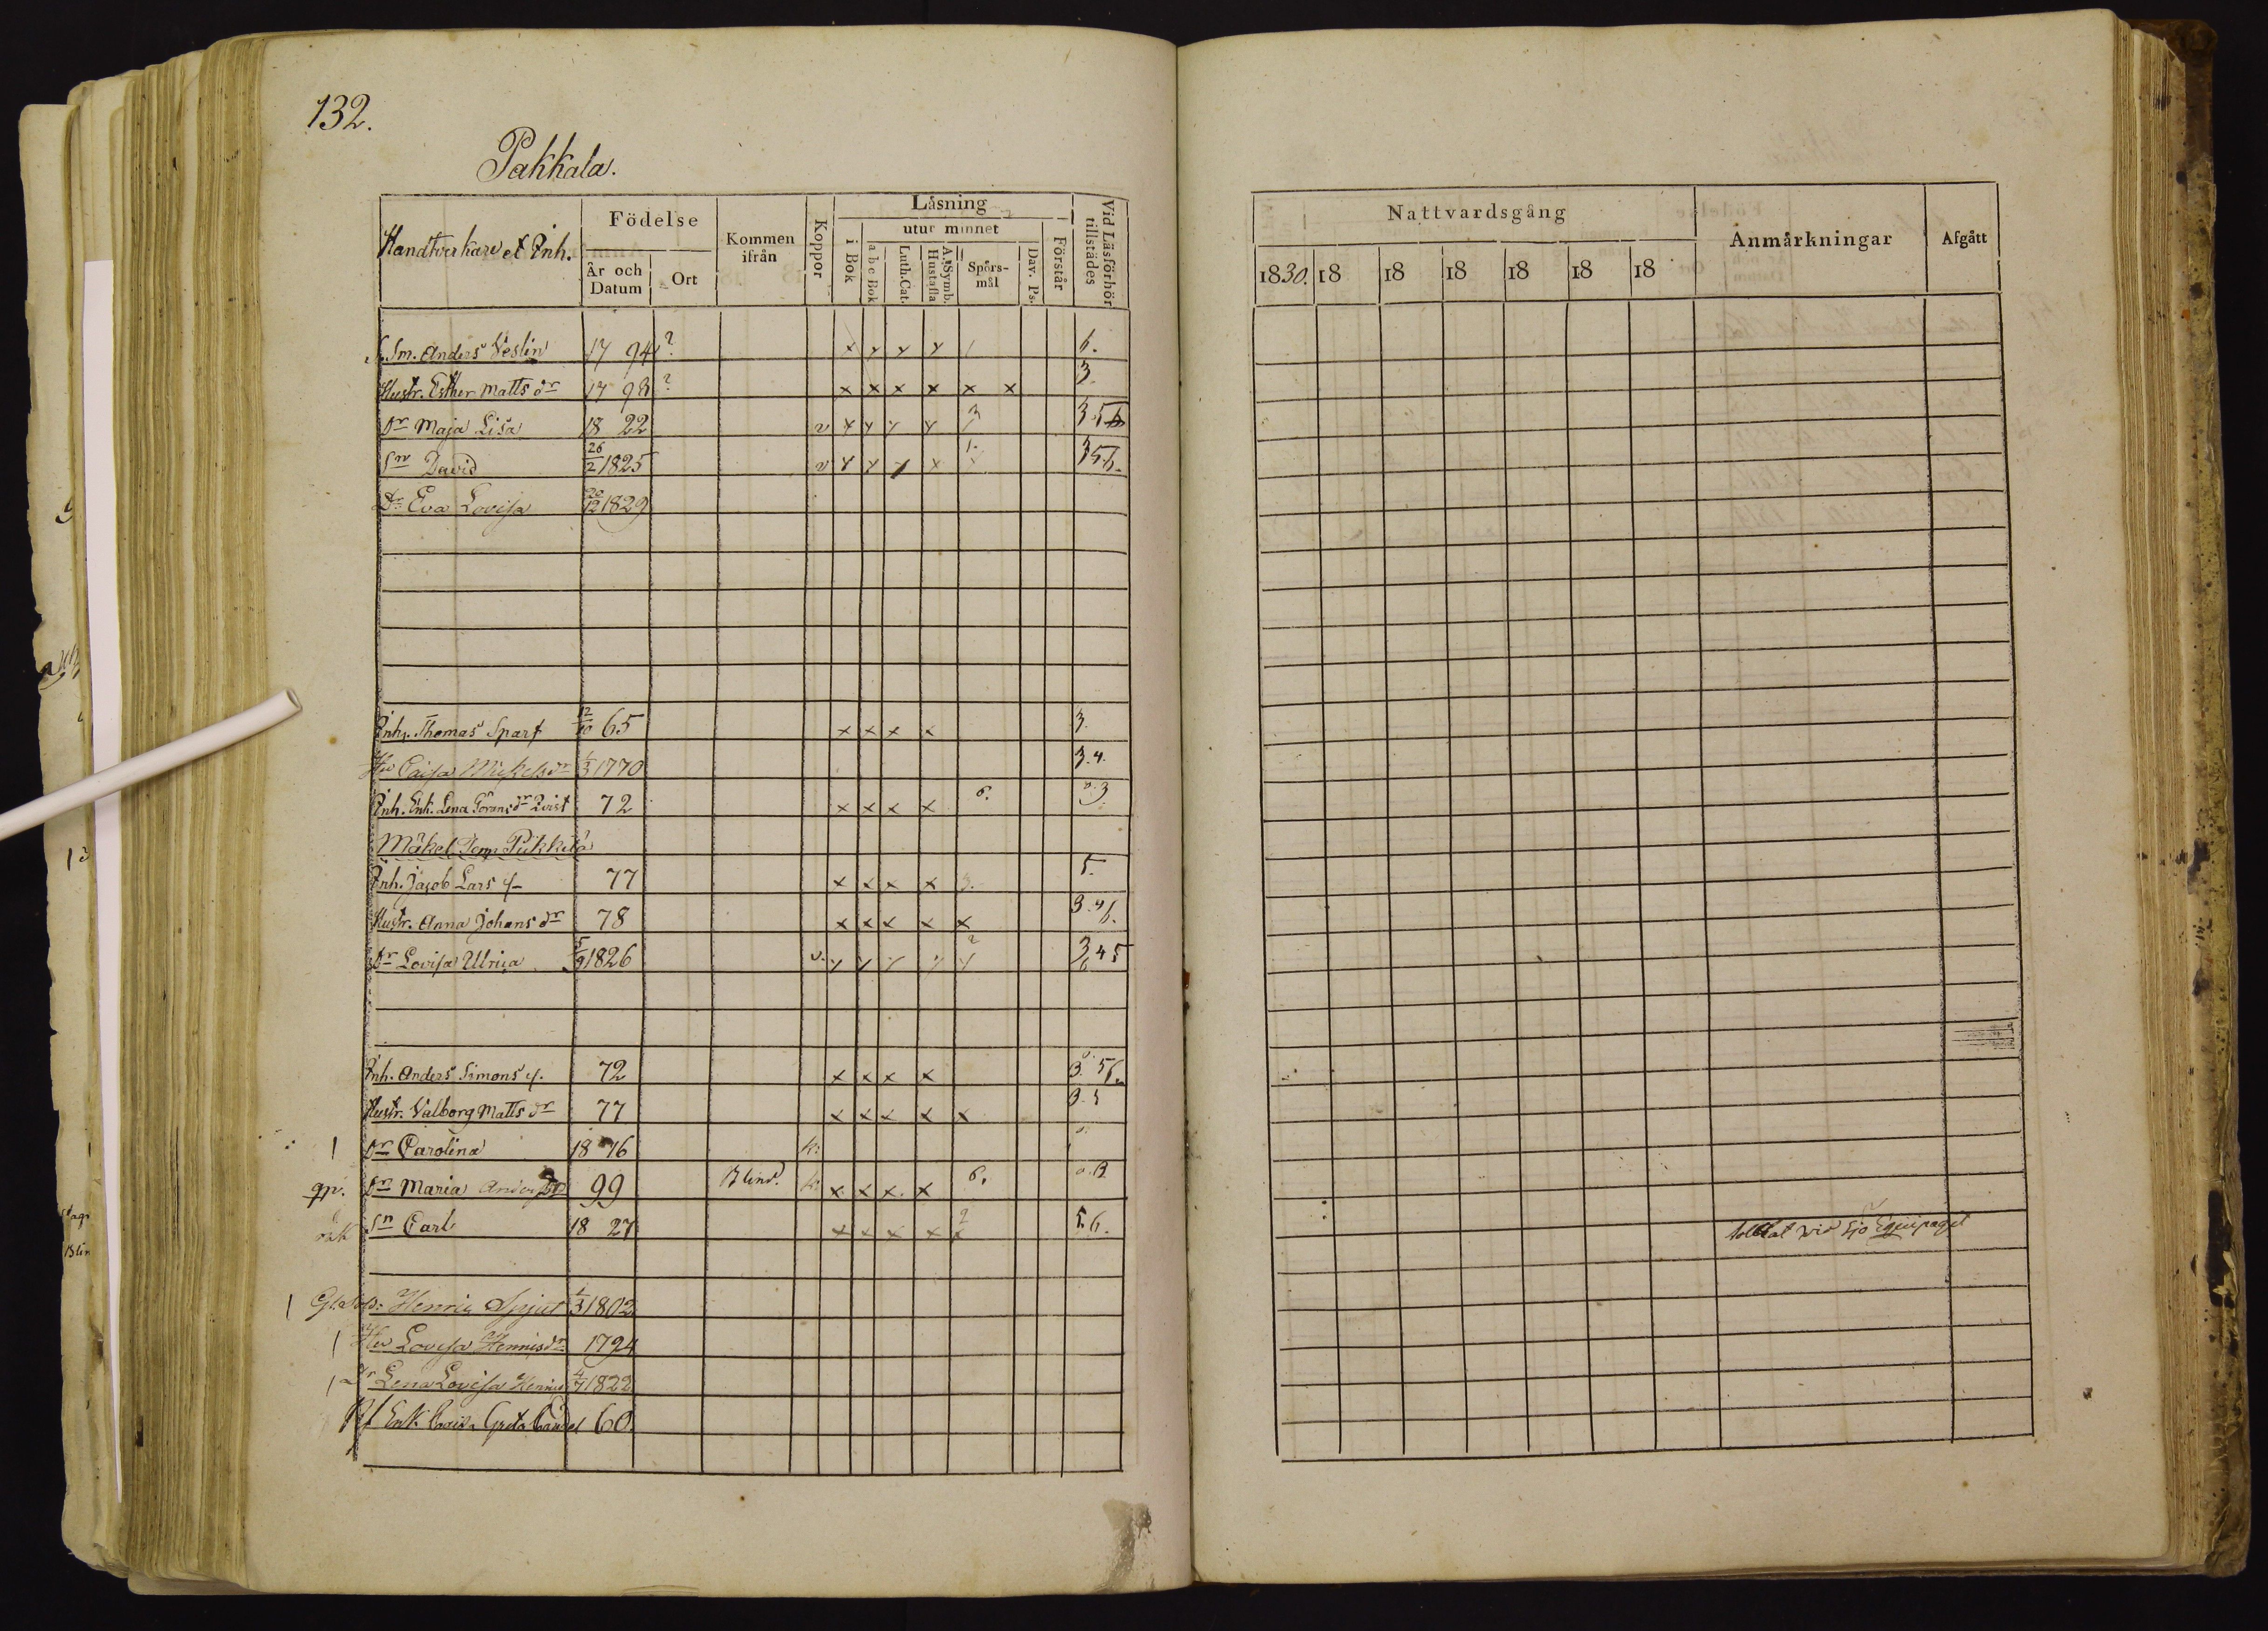 132.
Pakkala.
Handtverkare et Inh.
Födelse
År och Datum
Ort
Kommen ifrån
Koppor
Läsning
i Bok
utur minnet
a b c Bok
Luth. Cat.
A. Symb. Hustafla
Spörsmål
Dav. Ps.
Förstår
Vid Läsförhör tillstädes
Nattvardsgång
1830. 18 18 18 18 18 18
Anmärkningar
Afgått
Sm. Anders Veslin 17 94 ? x y y y 6.
Hustr. Esther Matts dr 17 98 ? x x x x x x 3.
Dr Maja Lisa 18 22 v y y y y 3 3.5.6
Sn David 26/2 1825 v y y y x 1. 3 5.6.
Dr Eva Lovisa 20/12 1829
Inh. Thomas Sparf 12/10 65 x x x x 3.
Hu Caisa Mickelsdr 1/3 1770 3.4.
Inh. Enk. Lena Göransdr Qvist 72 x x x x 6. 3.
Mäkel Pukkila
Inh. Jacob Lars s. 77 x x x x 3. 5.
Hustr. Anna Johans dr 78 x x x x x 3.4 6.
Dr Lovisa Ulrica 5/9 1826 v. y y y y y 2 3 4 5 6
Inh. Anders Simons s. 72 x x x x 3. 5 6.
Hustr. Valborg Matts dr 77 x x x x x 3. 5
1 Dr Carolina 18 16 k:
Dr Maria Anders 99 Blind. k. x x x x 6. 3
Sn Carl 18 27 x x x x x 2 5.6. vid Sjö Equipaget
1 Henric Spjut 1/3 1802
1 Hu Lovisa Henricsdr 1794
1 Dr Lena Lovisa Henrics 4/7 1822
Enk. Caisa Greta 60.